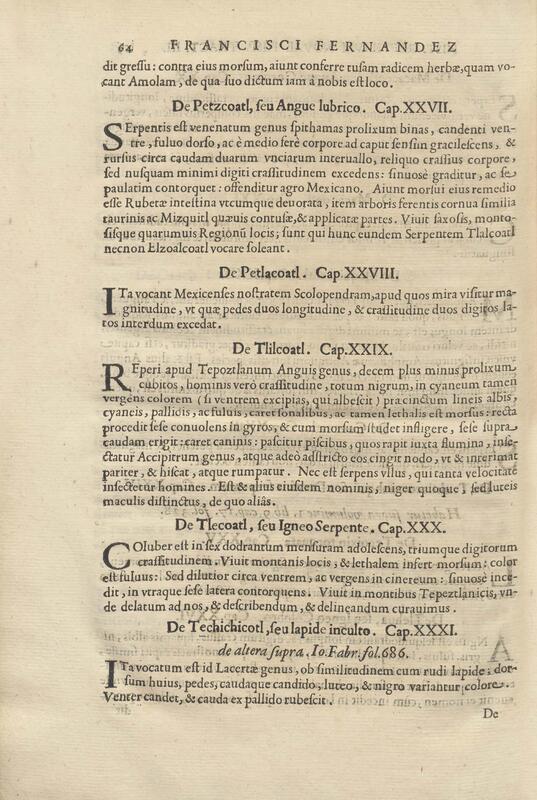 64 FRANCISCI FERNANDEZ
dit gressu: contra eius morsum, aiunt conferre tusam radicem herbæ, quam vo-
cant Amolam, de qua suo dictum iam à nobis est loco.
De Petzcoatl, seu Angue lubrico. Cap. XXVII.
SErpentis est venenatum genus spithamas prolixum binas, candenti ven-
tre, fuluo dorso, ac è medio ferè corpore ad caput sensim gracilescens, &
rursus circa caudam duarum vnciarum interuallo, reliquo crassius corpore,
sed nusquam minimi digiti crassitudinem excedens: sinuosè graditur, ac se
paulatim contorquet: offenditur agro Mexicano. Aiunt morsui eius remedio
esse Rubetæ intestina vtcumque deuorata, item arboris ferentis cornua similia
taurinis ac Mizquitl quæuis contusæ, & applicatæ partes. Viuit saxosis, monto-
sisque quarumuis Regionū locis; sunt qui hunc eundem Serpentem Tlalcoatl
necnon Elzoalcoatl vocare soleant.
De Petlacoatl. Cap. XXVIII.
ITa vocant Mexicenses nostratem Scolopendram, apud quos mira visitur ma-
gnitudine, vt quæ pedes duos longitudine, & crassitudine duos digitos la-
tos interdum excedat.
De Tlilcoatl. Cap. XXIX.
REperi apud Tepoztlanum Anguis genus, decem plus minus prolixum
cubitos, hominis verò crassitudine, totum nigrum, in cyaneum tamen
vergens colorem (si ventrem excipias, qui albescit) præcinctum lineis albis,
cyaneis, pallidis, ac fuluis, caret sonalibus, ac tamen lethalis est morsus: recta
procedit sese conuolens in gyros, & cum morsum studet infligere, sese supra
caudam erigit: caret caninis: pascitur piscibus, quos rapit iuxta flumina, inse-
ctatur Accipitrum genus, atque adeò adstricto eos cingit nodo, vt & interimat
pariter, & hiscat, atque rumpatur. Nec est serpens vllus, qui tanta velocitate
insectetur homines. Est & alius eiusdem nominis, niger quoque, sed luteis
maculis distinctus, de quo aliàs.
De Tlecoatl, seu Igneo Serpente. Cap. XXX.
COluber est in sex dodrantum mensuram adolescens, triumque digitorum
crassitudinem. Viuit montanis locis, & lethalem infert morsum: color
est fuluus: Sed dilutior circa ventrem, ac vergens in cinereum: sinuosè ince-
dit, in vtraque sese latera contorquens. Viuit in montibus Tepeztlanicis, vn-
de delatum ad nos, & describendum, & delineandum curauimus.
De Techichicotl, seu lapide inculto. Cap. XXXI.
de altera supra. Io. Fabr. fol. 686.
ITa vocatum est id Lacertæ genus, ob similitudinem cum rudi lapide: dor-
sum huius, pedes, caudaque candido, luteo, & nigro variantur colore.
Venter candet, & cauda ex pallido rubescit.
De